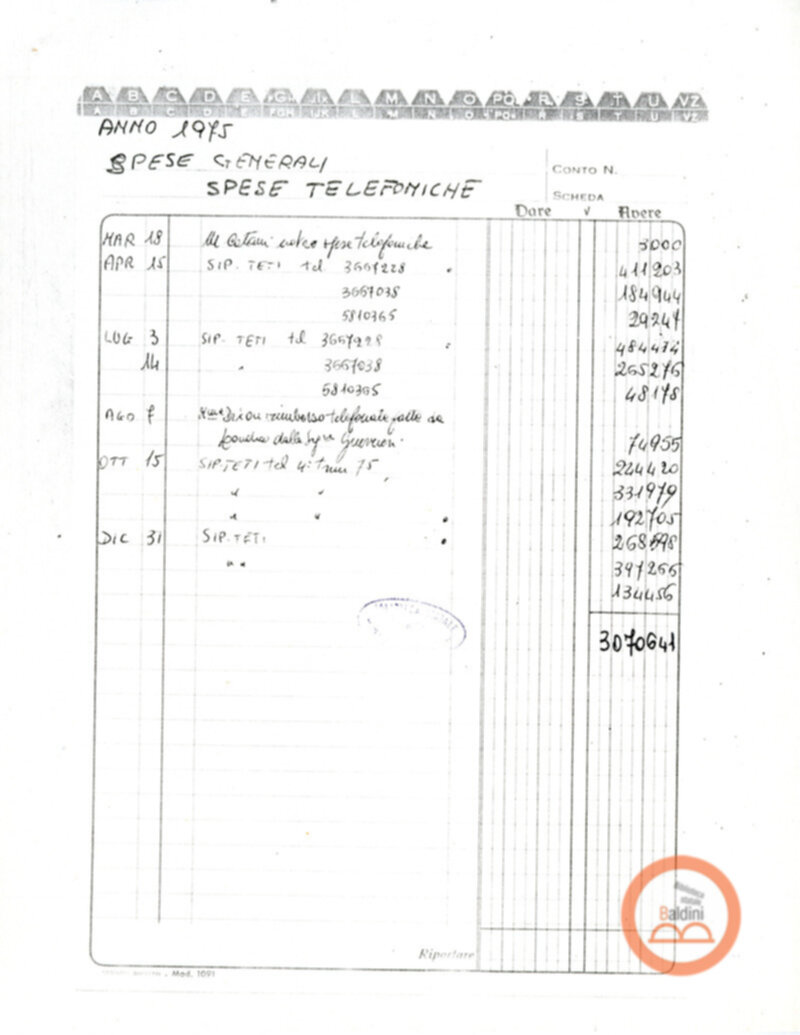 A B C D E FGH IJK L M N O PQ R S T U VZ
A B C D E FGH IJK L M N O PQ R S T U VZ
ANNO 1975
SPESE GENERALI
CONTO N.
SPESE TELEFONICHE
SCHEDA
Dare √ Avere
MAR 18 spese telefoniche 3000
APR 15 SIP. TETI tel 3667228 411203
3667038 184944
5810365 29247
LUG 3 SIP. TETI tel 3667228 484474
14 " 3667038 265276
5810365 48178
AGO 7 rimborso telefonate fatte da
Londra dalla 74955
OTT 15 SIP. TETI tel 4° trim 75 224420
" " 331979
" " 192705
DIC 31 SIP. TETI 268898
" " 397266
134456
3070641
Riportare
Mod. 1091
Biblioteca
statale
Baldini